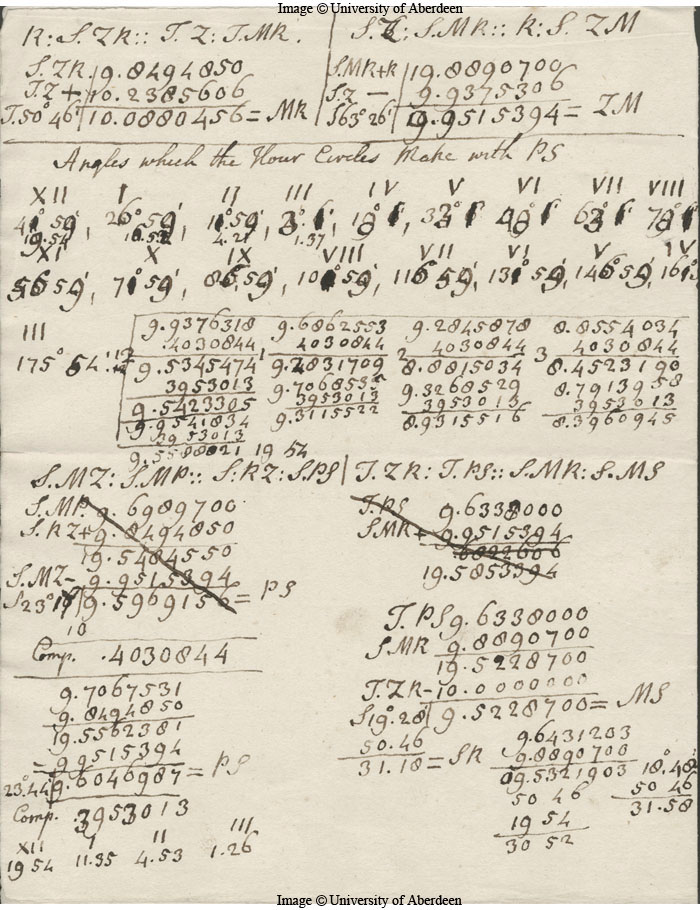 Image © University of Aberdeen
R: S. ZR :: T. Z: T.MR.
S.ZR 9.8494850
T.Z+ 10.2385606
T.50° 46' 10.0880456 = MR
S.Z: S.MR :: R: S. ZM
S.MR+R 19.8890700
S.Z — 9.9375306
S63° 26' 9.9515394 = ZM
Angles which the Hour Circles Make with PS
XII I II III IV V VI VII VIII
41° 59', 26° 59', 11° 59',
19.54 4.21 1.37
XI X IX VIII VII VI V IV
56 59', 71° 59', 86° 59', 101° 59', 116° 59', 131° 59', 146° 59',
III
175° 54'
9.9376318 9.6862553 9.2845878 8.8554034
4030844 4030844 4030844 4030844
9.5345474 1 9.2831709 2 8.8815034 3 8.4523190
3953013 9.7068535 9.3268529 8.7913958
9.5423305 3953013 3953013 3953013
9.9541834 9.3115522 8.9315516 8.3960945
3953013
9.5588821 19 54
S.MZ: S.MP :: S:RZ: S.PS
S.MP. 9.6989700
S.RZ+ 9.8494850
19.5484550
S.MZ- 9.9515394
S23° 9.5969156 = PS
10
Comp. .4030844
9.7067531
9.8494850
19.5562381
- 9.9515394
23° 44' 9.6046987 = PS
Comp. 3953013
XII I II III
19 54 11.35 4.53 1.26
T.ZR: T.PS :: S.MR: S.MS
T.PS 9.6338000
S.MR+ 9.9515394
19.5853394
T.PS 9.6338000
S.MR 9.8890700
19.5228700
T.ZR- 10.0000000
S19° 28' 9.5228700 = MS
50.46
31.18 = SR
9.6431203
9.8890700
19.5321903 18° 48'
50 46 50 46
19 54 31.58
30 52
Image © University of Aberdeen